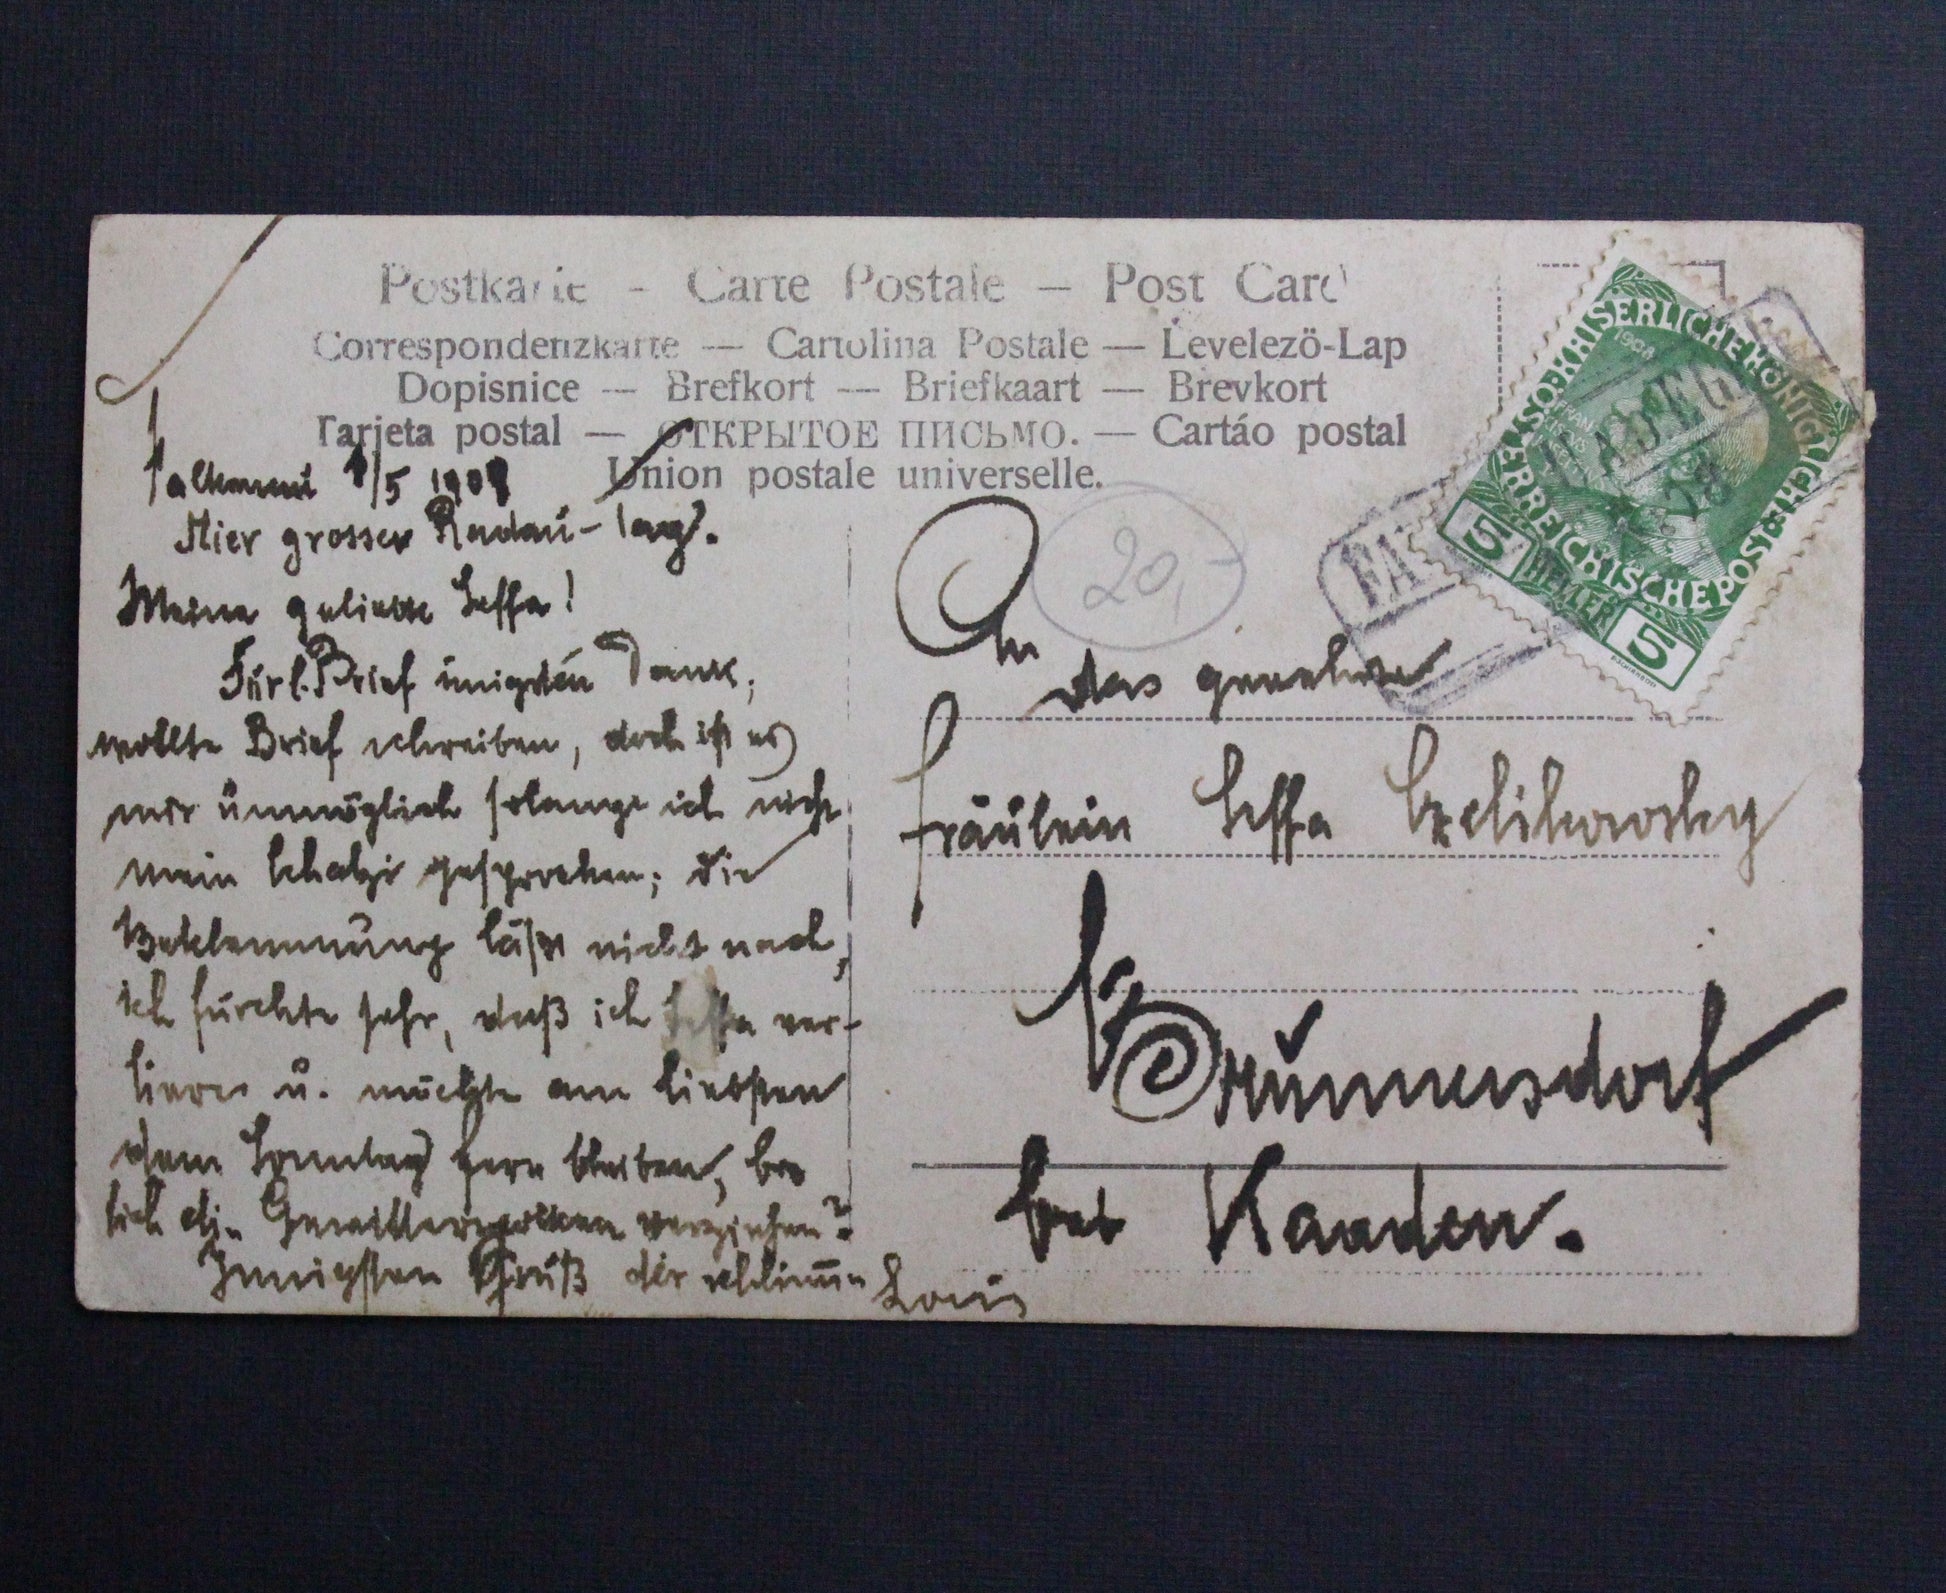 Postkarte - Carte Postale - Post Card
Correspondenzkarte — Cartolina Postale — Levelezö-Lap
Dopisnice — Brefkort — Briefkaart — Brevkort
Tarjeta postal — ОТКРЫТОЕ ПИСЬМО. — Cartáo postal
Union postale universelle.
/5 190
Hier grosser Radau-Tag.
Meine geliebte Seffa!
Für l. Brief innigsten Dank,
wollte Brief schreiben, doch ist es
mir unmöglich solange ich nicht
mein Schatzi gesprochen; die
Beklemmung läßt nicht nach,
ich fürchte sehr, daß ich Seffa ver-
liere u. möchte am liebsten
dem Sonntag fern bleiben, bis
sich die Gewitterwolken verziehen?
Innigsten Gruß der schlimme Louis
20,-
An
das geehrte
Fräulein Seffa
Brunnersdorf
bei Kaaden.
KAISERLICHE KÖNIGLICHE ÖSTERREICHISCHE POST
1908
5 HELLER 5